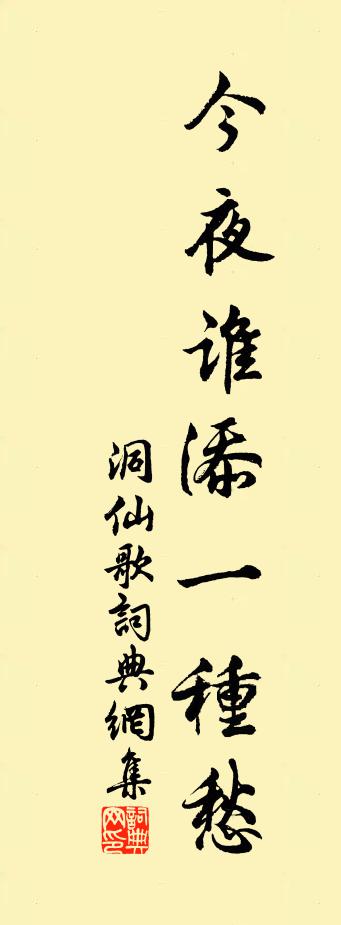 今夜谁添一種愁
洞仙歌詞典網集
詞典
网印